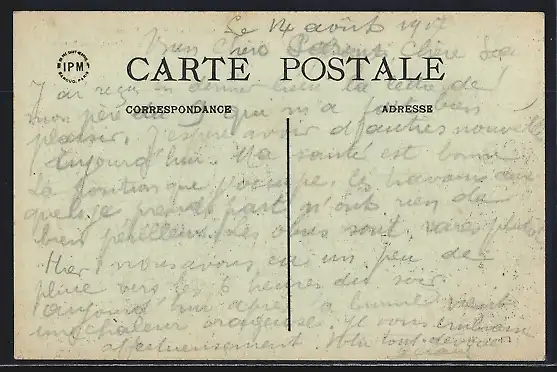 Le 14 août 1917
Bien Chers Parents Chère
IPM
CARTE POSTALE
CORRESPONDANCE
ADRESSE
J'ai reçu en dernier lieu la lettre de
mon père du 9 qui m'a fait bien
plaisir. J'espère avoir d'autres nouvelles
aujourd'hui. Ma santé est bonne
La position que j'occupe, les travaux
quels je prends part n'ont rien de
bien périlleux. Les obus sont rares
Hier nous avons eu un peu de
pluie vers les 6 heures du soir
aujourd'hui après
chaleur orageuse. Je vous embrasse
affectueusement. Votre tout dévoué